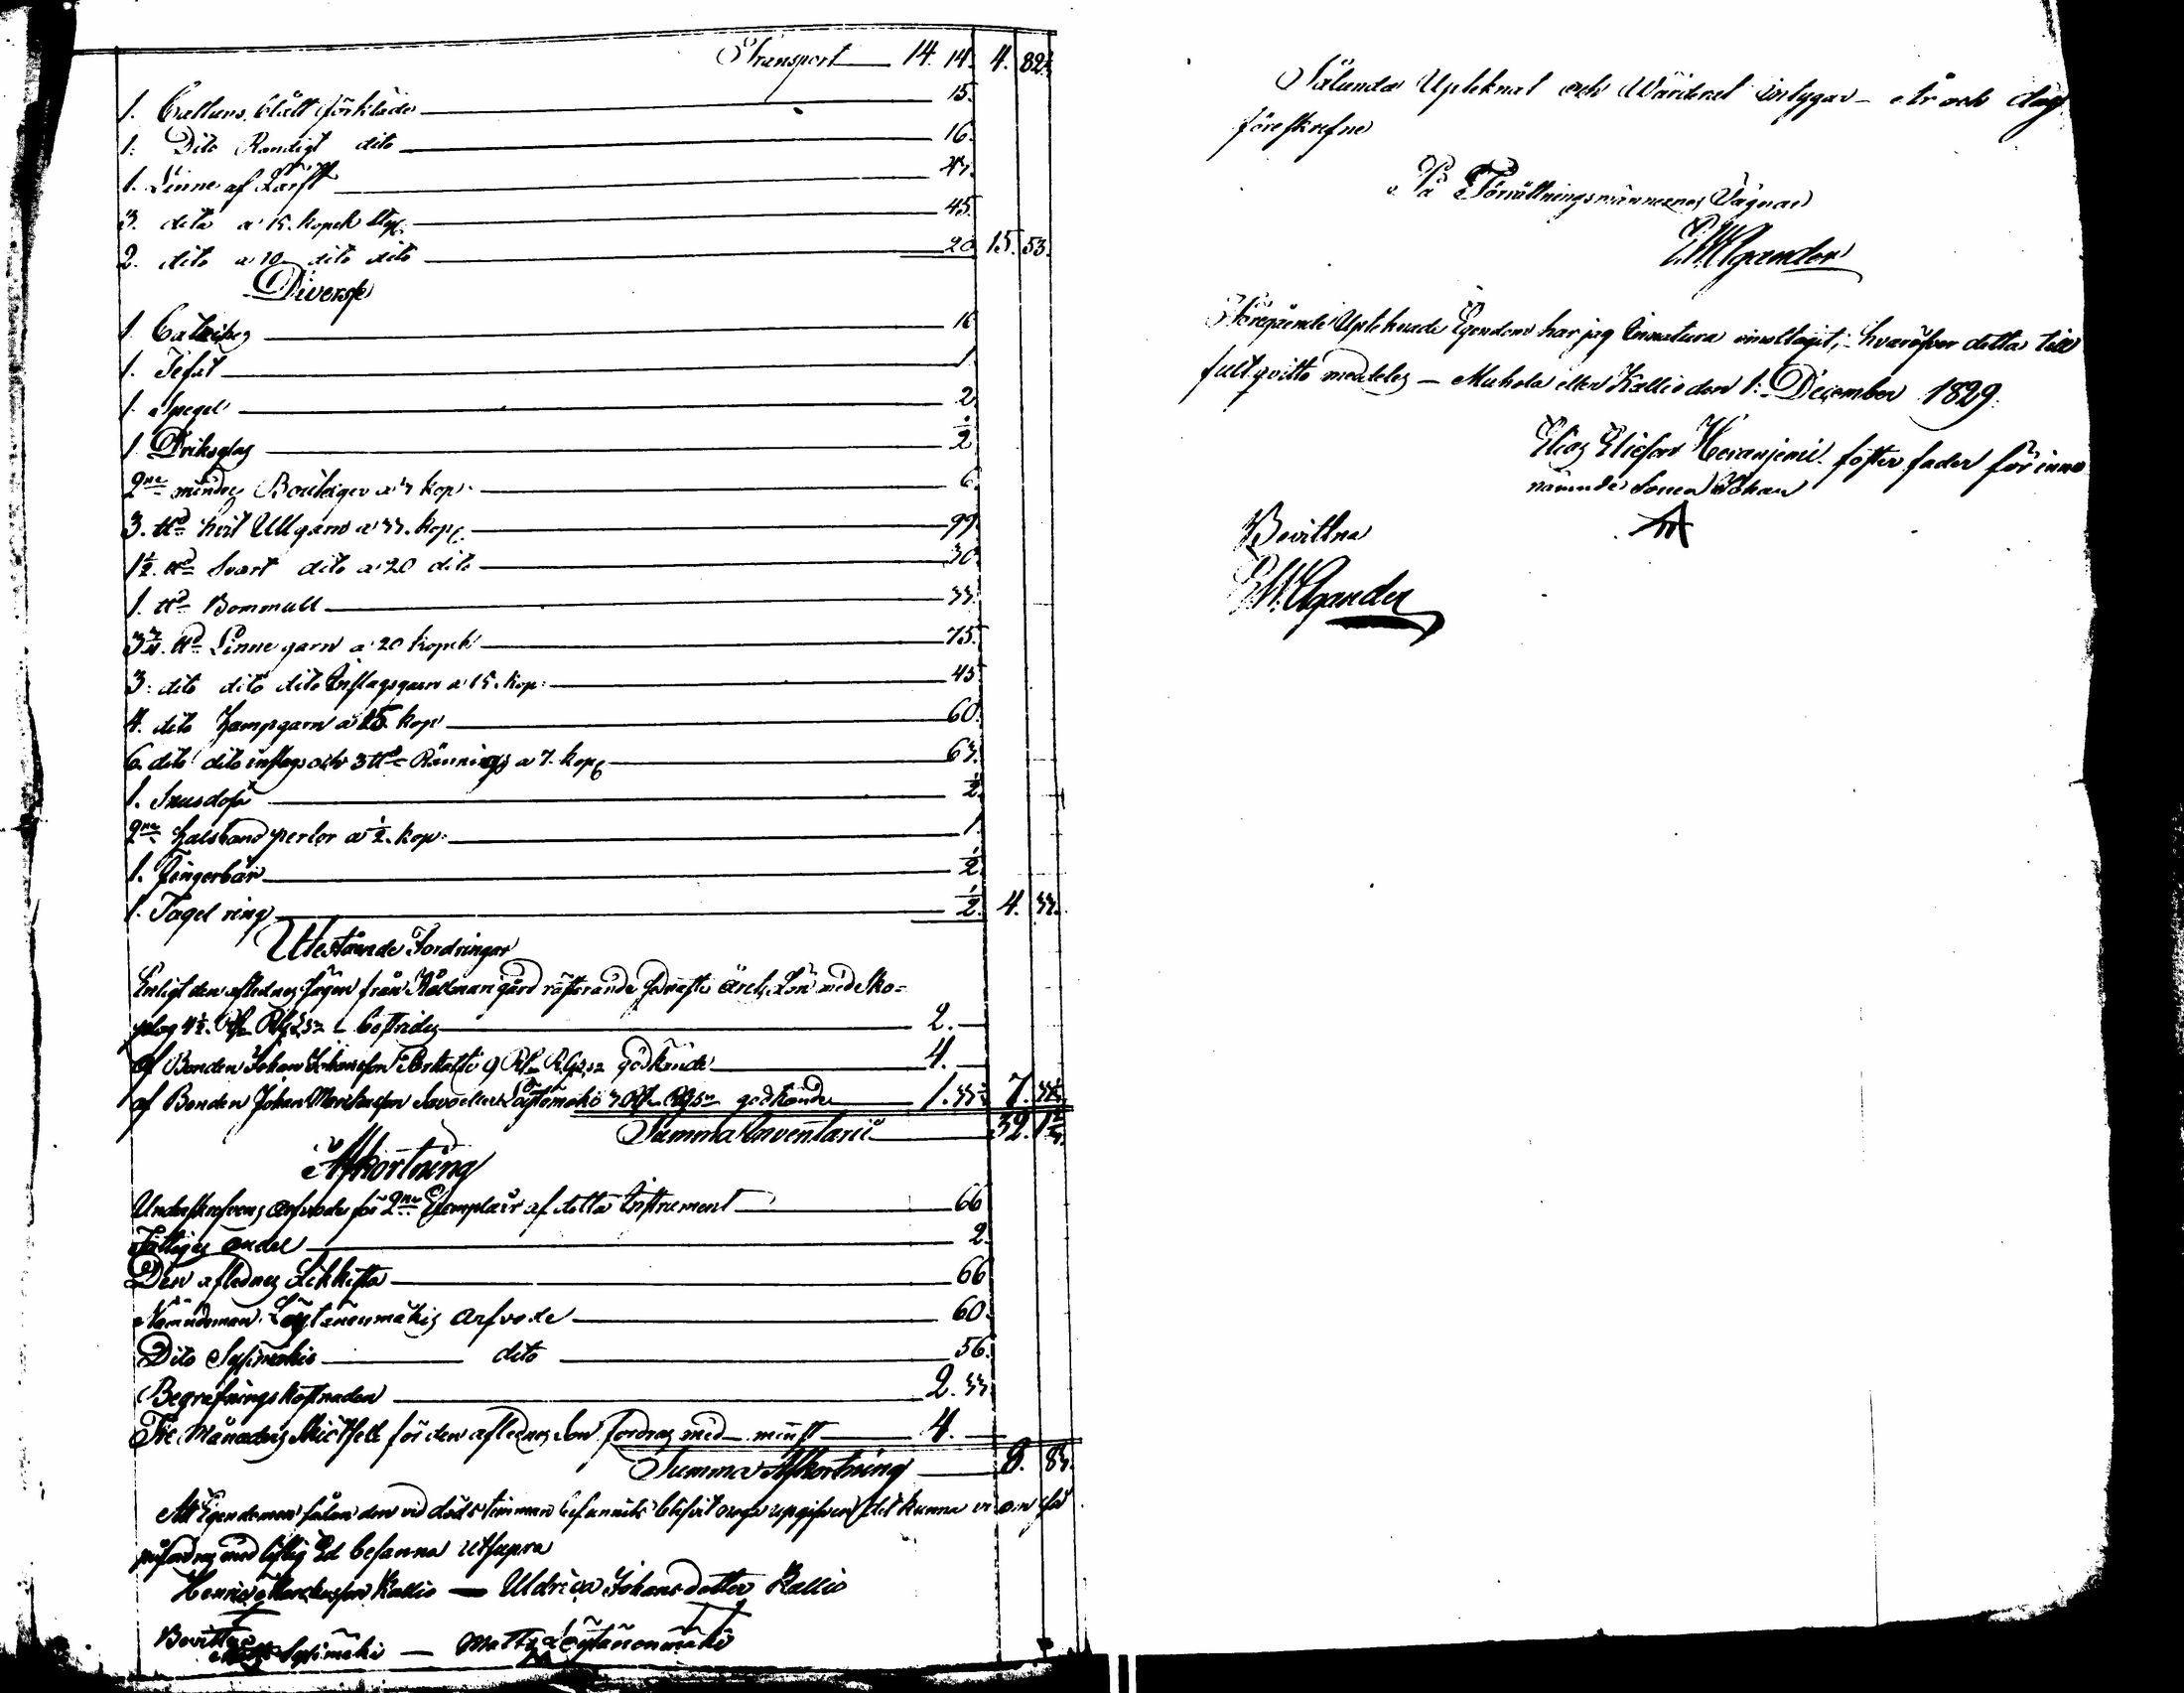 Transport 14. 14. 4. 82½
1. Cattuns blått förkläde 15.
1. Dito Randigt dito 16.
1. Linne af Lärft 27.
3. dito a 15. kopek stÿc 45.
2. dito a 10 dito dito 20. 15. 53.
Diverse
1. 16
1. Téfat 1.
1. Spegel 2.
1. Driksglas ½
2ne mindre Bouteiger a 3 kop. 6.
3. ttd hvit Ullgarn a 33. kop. 99.
1½. ttd Svart dito a 20 dito 30.
1. ttd Bommull 33.
3¾. ttd Linnegarn a 20 kopek 75.
3. dito dito dito Inslagsgarn a 15. kop: 45
4. dito Hampgarn a 15. kop 60.
6. dito dito inslags och 3 ttd Rännings a 7. kop 63.
1. Snusdosa ½
2ne halsband perlor a ½. kop: 1.
1. Fingerbår ½
1. Tagel ring ½. 4. 33.
Utestående Fordringar
Enligt den aflednes sägen från Källman gård årets Lön med Sko-
plag 4½. 2.
af Bonden Johan Johansson 9 godkände 4.
af Bonden Johan Savo eller godkände 1. 33½ 7. 33½
Summa Inventarii 32.
Afkortning
Underskrefvens arfvode för 2ne Exemplair af detta Instrument 66
Fattiges andel 2.
Den aflednes Likkista 66
Nämndeman Löytänenmäkis arfvode 60.
Dito Sysimäkis dito 56.
Begrafningskostnaden 2. 33
Tre Månaders för den aflednes Son fordras med minst 4.
Summa Afkortning 8. 83.
Att Egendomen sådan den vid dödstimman befunnits blifvit noga upgifven det kunna vi om så
påfordras med liflig Ed besanna utsupra
Henric Kallio — Uldrica Johansdotter Kallio
Bevittna
Sysimäki — Matts Löytänenmäki
Sålunda Upteknat och Wärderat intygar År och dag
föreskrefne
På Förrättningsmännernes Vägnar
E.W. Agander
Föregående Upteknade Egendom har jag Innatura emottagit, hvaröfver detta till
fult qvitto meddeles — Muhola eller Kallio den 1: December 1829.
Elias Eliesson Heranjemi foster fader för inne
nämnde Sonen Johan
Bevittna
E.W. Agander